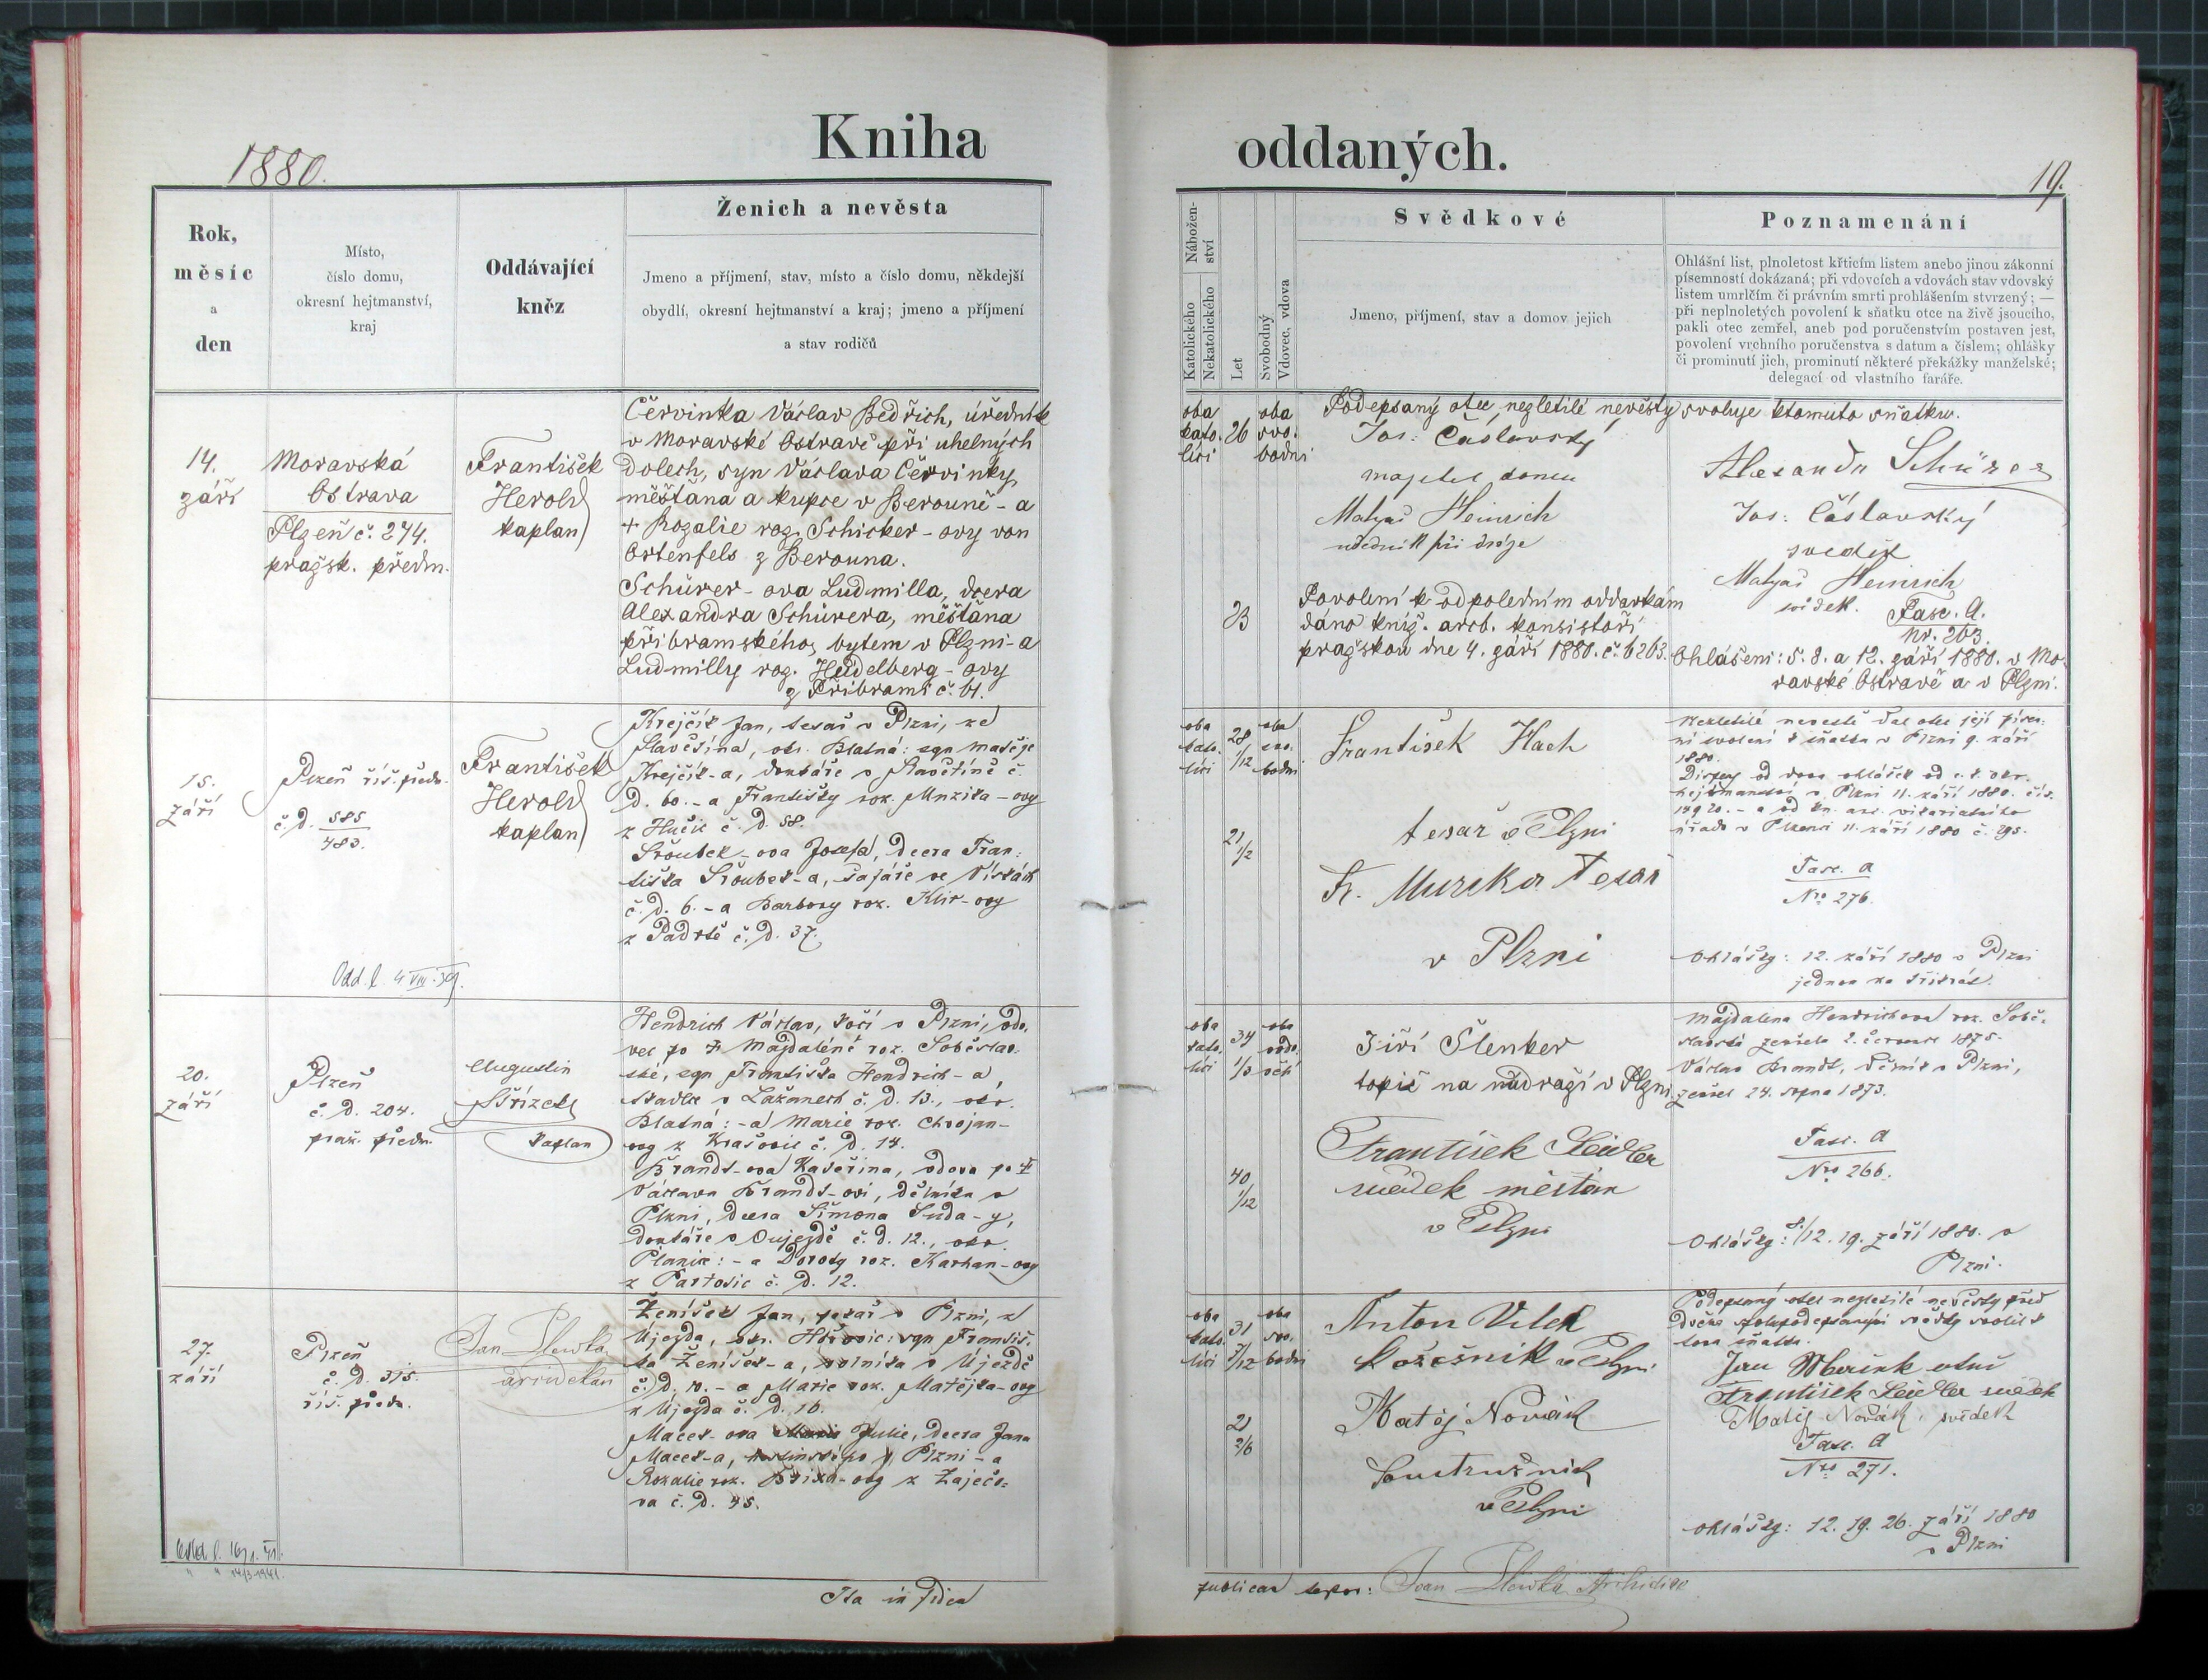 Kniha
oddaných.
1880.
19.
Rok,
měsíc
a
den
Místo,
číslo domu,
okresní hejtmanství,
kraj
Oddávající
kněz
Ženich a nevěsta
Jmeno a příjmení, stav, místo a číslo domu, někdejší
obydlí, okresní hejtmanství a kraj; jmeno a příjmení
a stav rodičů
Nábožen-
ství
Katolického
Nekatolického
Let
Svobodný
Vdovec, vdova
Svědkové
Jmeno, příjmení, stav a domov jejich
Poznamenání
Ohlášní list, plnoletost křticím listem anebo jinou zákonní
písemností dokázaná; při vdovcích a vdovách stav vdovský
listem umrlčím či právním smrti prohlášením stvrzený; —
při neplnoletých povolení k sňatku otce na živě jsoucího,
pakli otec zemřel, aneb pod poručenstvím postaven jest,
povolení vrchního poručenstva s datum a číslem; ohlášky
či prominutí jich, prominutí některé překážky manželské;
delegací od vlastního faráře.
14.
září
Moravská
Ostrava
Plzeň č. 274.
pražsk. předm.
František
Herold
kaplan
Červinka Václav Bedřich, úředník
v Moravské Ostravě při uhelných
dolech, syn Václava Červinky,
měšťana a kupce v Berouně - a
+ Rozalie roz. Schicker - ovy von
Ostenfels z Berouna.
Schürer - ova Ludmilla, dcera
Alexandra Schürera, měšťana
příbramského, bytem v Plzni - a
Ludmilly roz. Heidelberg - ovy
z Příbrami č. 61.
oba
kato.
líci
26
oba
svo.
bodni
23
Podepsaný otec nezletilé nevěsty svoluje ktomuto sňatku.
Jos: Čáslavský
majetel domu
Matyáš Heinrich
úředník při dráze
Povolení k odpoledním oddavkám
dáno kníž. arcb. konsistoří
pražskou dne 4. září 1880. č. 6263.
Alexandr Schürer
Jos: Čáslavský
svedek
Matyáš Heinrich
svědek.
Fasc. A.
Nr. 263.
Ohlášení: 5. 8. a 12. září 1880. v Mo-
ravské Ostravě a v Plzni.
15.
září
Plzeň říš. předm.
č. d. 585
483.
František
Herold
kaplan
Krejčík Jan, tesař v Plzni, ze
Slavětína, okr. Blatná: syn Matěje
Krejčík-a, domkáře v Slavětíně č.
d. 60. - a Františky roz. Muzika - ovy
z Hučic č. d. 58.
Šroubek - ova Josefa, dcera Fran-
tiška Šroubek-a, šafáře ve Vískách
č. d. 6. - a Barbory roz. Klír - ovy
z Padrtě č. d. 37.
Odd. l. 4 VIII. 39.
oba
kato.
líci
28
1/12
oba
svo.
bodni
21
1/2
František Hach
tesař v Plzni
Fr. Muzika Tesař
v Plzni
Nezletilé nevestě dal otec její písem-
ní svolení k sňatku v Plzni 9. září
1880.
Dispens od dvou ohlášek od c. k. okr.
hejtmanství v Plzni 11. září 1880. čís.
14920. - a od kn. arc. vikariatního
úřadu v Plzni 11. září 1880 č. 295.
Fasc. A
Nro 276.
Ohlášky: 12. září 1880 v Plzni
jednou za třikrát.
20.
září
Plzeň
č. d. 204.
praž. předm.
Augustin
Střízek
kaplan
Hendrich Václav, kočí v Plzni, vdo-
vec po † Magdaléně roz. Soběslav-
ské, syn Františka Hendrich - a,
tkadlce v Lažanech č. d. 13., okr.
Blatná: - a Marie roz. Chvojan-
ovy z Krašovic č. d. 14.
Brandt - ova Kateřina, vdova po †
Václavu Brandt-ovi, dělníku v
Plzni, dcera Šimona Suda - y,
domkáře v Oujezdě č. d. 12., okr.
Planic: - a Doroty roz. Karhan - ovy
z Partosic č. d. 12.
oba
kato.
líci
34
1/3
oba
vdo.
včí
40
1/12
Jiří Šlenker
topič na nádraží v Plzni.
František Seidler
svědek měšťan
v Plzni
Magdalena Hendrichova roz. Sobě-
slavská zemřela 2. července 1875.
Václav Brandt, dělník v Plzni,
zemřel 24. srpna 1873.
Fasc. A
Nro 266.
Ohlášky: 8./12. 19. září 1880. v
Plzni.
27.
září
Plzeň
č. d. 315.
říš. předm.
Jan Slewka
arciděkan
Ženíšek Jan, pekař v Plzni, z
Újezda, okr. Hořovic: syn Františ-
ka Ženíšek - a, rolníka v Újezdě
č. d. 10. - a Marie roz. Matějka - ovy
z Újezda č. d. 16.
Macek - ova Julie, dcera Jana
Macek-a, hostinského v Plzni - a
Rozalie roz. Brixa - ovy z Zaječo-
va č. d. 45.
oba
kato.
líci
31
5/12
oba
svo.
bodni
21
2/6
Anton Vlček
kožešník v Plzni
Matěj Novák
Soustružník
v Plzni
Podepsaný otec nezletilé nevěsty před
dvěma spolupodepsanými svědky svolil k
tomu sňatku.
Jan Macek otec
František Seidler svědek
Matěj Novák, svědek
Fasc. A
Nro 271.
Ohlášky: 12. 19. 26. září 1880
v Plzni
Ita in fidem
publicam testor: Joan Slewka Archidiac